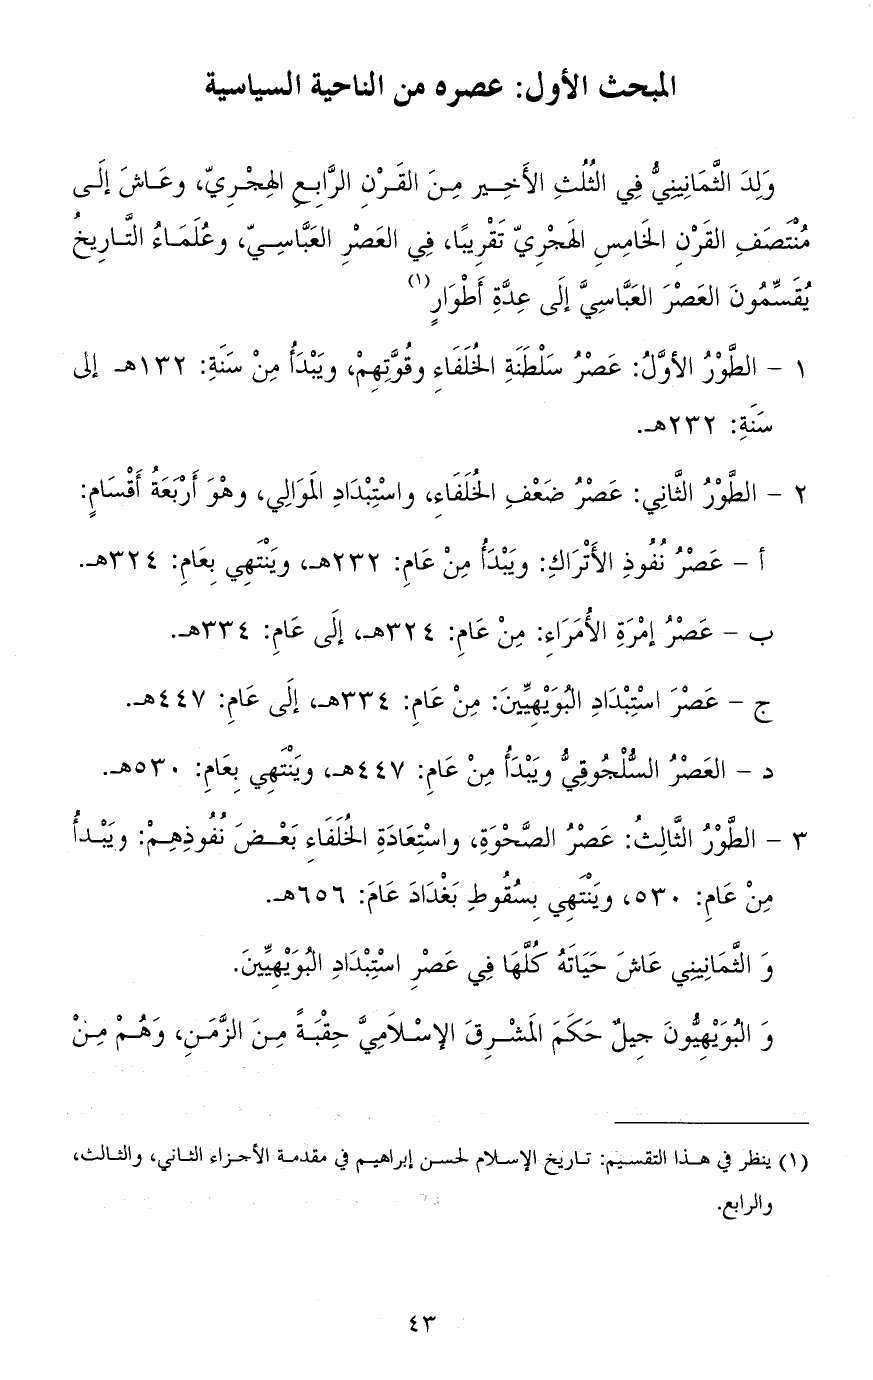 المبحث الأول: عصره من الناحية السياسية
وَلِدَ الثَّمَانِينِيُّ فِي الثُلُثِ الأَخِيرِ مِنَ القَرْنِ الرَّابِعِ الهِجْرِيّ، وعَاشَ إلَى
مُنْتَصَفِ القَرْنِ الخَامِسِ الهَجْرِيّ تَقْرِيبًا، فِي العَصْرِ العَبَّاسِيّ، وعُلَمَاءُ التَّارِيخِ
يُقَسِّمُونَ العَصْرَ العَبَّاسِيَّ إلَى عِدَّةِ أَطْوَارٍ(١)
١ - الطَّوْرُ الأوَّلُ: عَصْرُ سَلْطَنَةِ الخُلَفَاءِ وقُوَّتِهِمْ، ويَبْدَأُ مِنْ سَنَةِ: ١٣٢هـ إلى
سَنَةِ: ٢٣٢هـ.
٢ - الطَّوْرُ الثَّانِي: عَصْرُ ضَعْفِ الخُلَفَاءِ، واسْتِبْدَادِ المَوَالِي، وهْوَ أَرْبَعَةُ أَقْسَامٍ:
أ - عَصْرُ نُفُوذِ الأَتْرَاكِ: ويَبْدَأُ مِنْ عَامِ: ٢٣٢هـ، ويَنْتَهِي بِعَامِ: ٣٢٤هـ.
ب - عَصْرُ إمْرَةِ الأُمَرَاءِ: مِنْ عَامِ: ٣٢٤هـ، إلَى عَامِ: ٣٣٤هـ.
ج - عَصْرَ اسْتِبْدَادِ البُوَيْهِيِّينَ: مِنْ عَامِ: ٣٣٤هـ، إلَى عَامِ: ٤٤٧هـ.
د - العَصْرُ السُّلْجُوقِيُّ ويَبْدَأُ مِنْ عَامِ: ٤٤٧هـ، ويَنْتَهِي بِعَامِ: ٥٣٠هـ.
٣ - الطَّوْرُ الثَّالِثُ: عَصْرُ الصَّحْوَةِ، واسْتِعَادَةِ الخُلَفَاءِ بَعْضَ نُفُوذِهِمْ: ويَبْدأُ
مِنْ عَامِ: ٥٣٠، ويَنْتَهِي بِسُقُوطِ بَغْدَادَ عَامَ: ٦٥٦هـ.
وَ الثَّمَانِينِي عَاشَ حَيَاتَهُ كُلَّهَا فِي عَصْرِ اسْتِبْدَادِ البُوَيْهِيِّينَ.
وَ البُوَيْهِيُّونَ جِيلٌ حَكَمَ المَشْرِقَ الإسْلاَمِيَّ حِقْبَةً مِنَ الزَّمَنِ، وَهُمْ مِنْ
(١) ينظر في هذا التقسيم: تاريخ الإسلام لحسن إبراهيم في مقدمة الأجزاء الثاني، والثالث،
والرابع.
٤٣